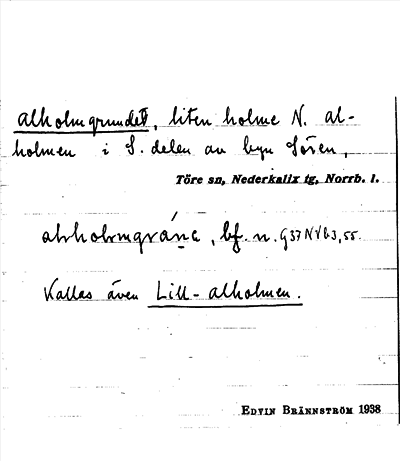 alholmgrundet, liten holme N. al-
holmen i S. delen av byn Sören,
Töre sn, Nederkalix tg, Norrb. l.
bf. n.
Kallas även Lill-alholmen.
EDVIN BRÄNNSTRÖM 1938